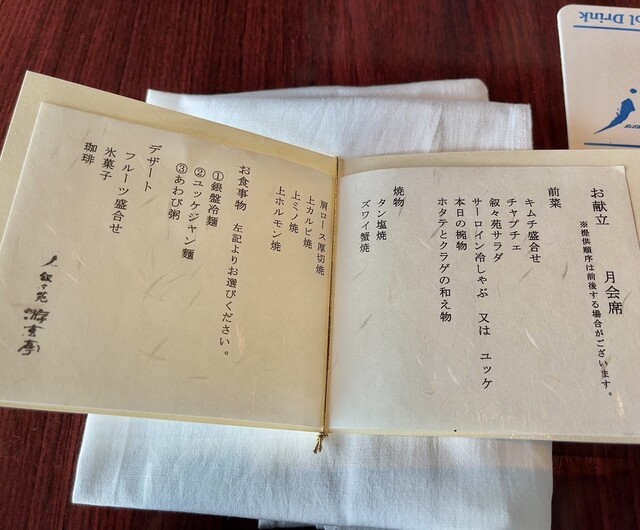 お献立　月会席
※提供順序は前後する場合がございます。
前菜
キムチ盛合せ
チャプチェ
叙々苑サラダ
サーロイン冷しゃぶ　又は　ユッケ
本日の椀物
ホタテとクラゲの和え物
焼物
タン塩焼
ズワイ蟹焼
肩ロース厚切焼
上カルビ焼
上ミノ焼
上ホルモン焼
お食事物　左記よりお選びください。
①銀盤冷麺
②ユッケジャン麺
③あわび粥
デザート
フルーツ盛合せ
氷菓子
珈琲
叙々苑 游玄亭
ol Drink